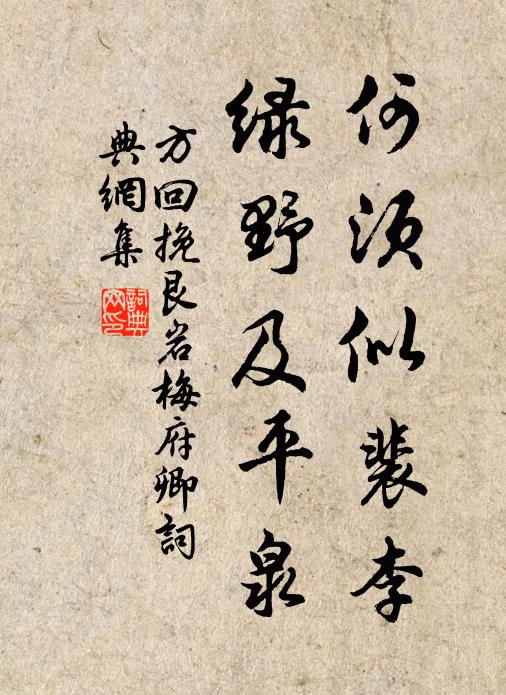 何须似裴李
緑野及平泉
方回挽艮岩梅府卿詞
典網集
詞典网印